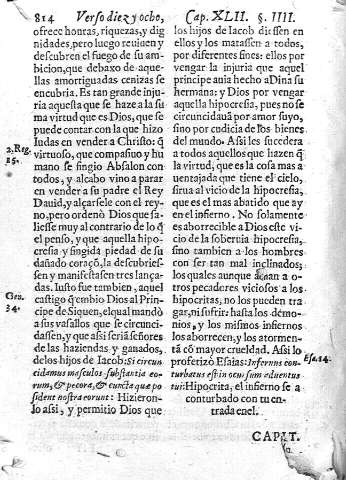 814 Verso diez y ocho,
ofrece honras, riquezas, y dig
nidades, pero luego reuiuen y
descubren el fuego de su am-
bicion, que debaxo de aque-
llas amortiguadas cenizas se
encubria. Es tan grande inju-
ria aquesta que se haze a la su
ma virtud que es Dios, que se
puede contar con la que hizo
Iudas en vender a Christo: q̃
virtuoso, que compasiuo y hu
mano se fingio Absalon con
todos, y alcabo vino a parar
en vender a su padre el Rey
Dauid, y alçarsele con el rey-
no, pero ordenò Dios que sa-
liesse muy al contrario de lo q̃
el penso, y que aquella hipo-
cresia y fingida piedad de su
dañado coraçõ, la descubries-
sen y manifestassen tres lança-
das. Iusto fue tambien, aquel
castigo q̃ embio Dios al Prin-
cipe de Siquen, el qual mandò
a sus vasallos que se circunci-
dassen, y que assi seriã señores
de las haziendas y ganados,
de los hijos de Iacob: Si circun
cidamus masculos substantia eo-
rum, & pecora, & cuncta quæ po
sident nostra eorunt: Hizieron-
lo assi, y permitio Dios que
2. Reg.
15.
Gen.
34.
Cap. XLII. §. IIII.
los hijos de Iacob diessen en
ellos y los matassen a todos,
por diferentes fines: ellos por
vengar la injuria que aquel
principe auia hecho a Dina su
hermana; y Dios por vengar
aquella hipocresia, pues no se
circuncidauã por amor suyo,
sino por cudicia de los bienes
del mundo. Assi les sucedera
a todos aquellos que hazen q̃
la virtud, que es la cosa mas a
uentajada que tiene el cielo,
sirua al vicio de la hipocresia,
que es el mas abatido que ay
en el infierno. No solamente
es aborrecible a Dios este vi-
cio de la soberuia hipocresia,
sino tambien a los hombres
con ser tan mal inclinados;
los quales aunque a o-
tros pecaderes viciosos a los
hipocritas, no los pueden tra
gar, ni sufrir: hasta los demo-
nios, y los mismos infiernos
los aborrecen, y los atormen-
tã cõ mayor crueldad. Assi lo
profetizò Esaias: Infernus con-
turbatus est in ocursum aduentus
tui: Hipocrita, el infierno se a
conturbado con tu en-
trada en el.
Esa. 14.
CAPIT.